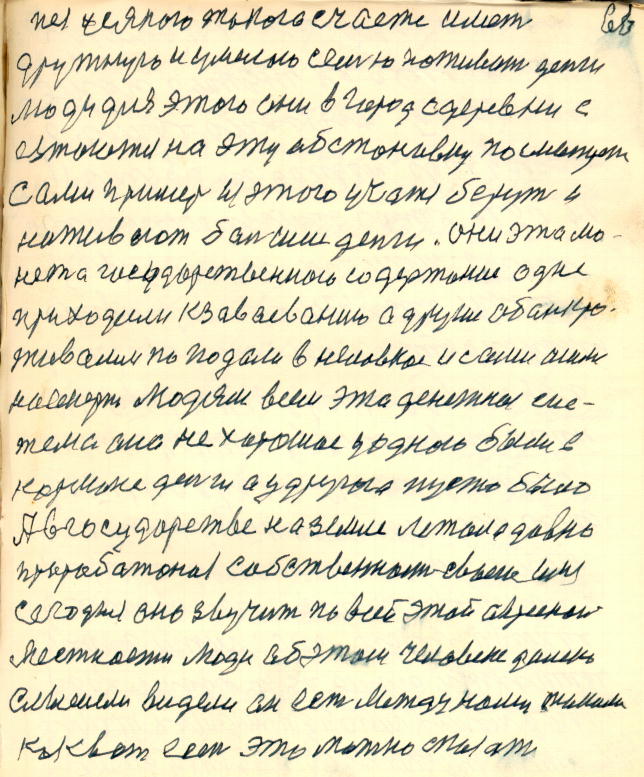 не у всякого такого счастье имет
дружную и умелою семю наживат денги
люди для этого они в город с деревни с
на эту абстоновку посмотрет
сами пример с этого берут и
наживают болшие денги. Они эта мо-
нета государственного содержание одне
приходили к завоеванию а другие абанкро-
живалим попадали в неловкое и сами
насмерть людям всем эта денежная сис-
тема она не хорошое у одного были в
кормане денги а у другова пусто было
А в государстве на земле летом давно
собственност своею
сегодня оно звучит по всей этой
местности люди аб этом человеке далеко
слышели видели он ест между ними такими
как вот ест это можно сказат